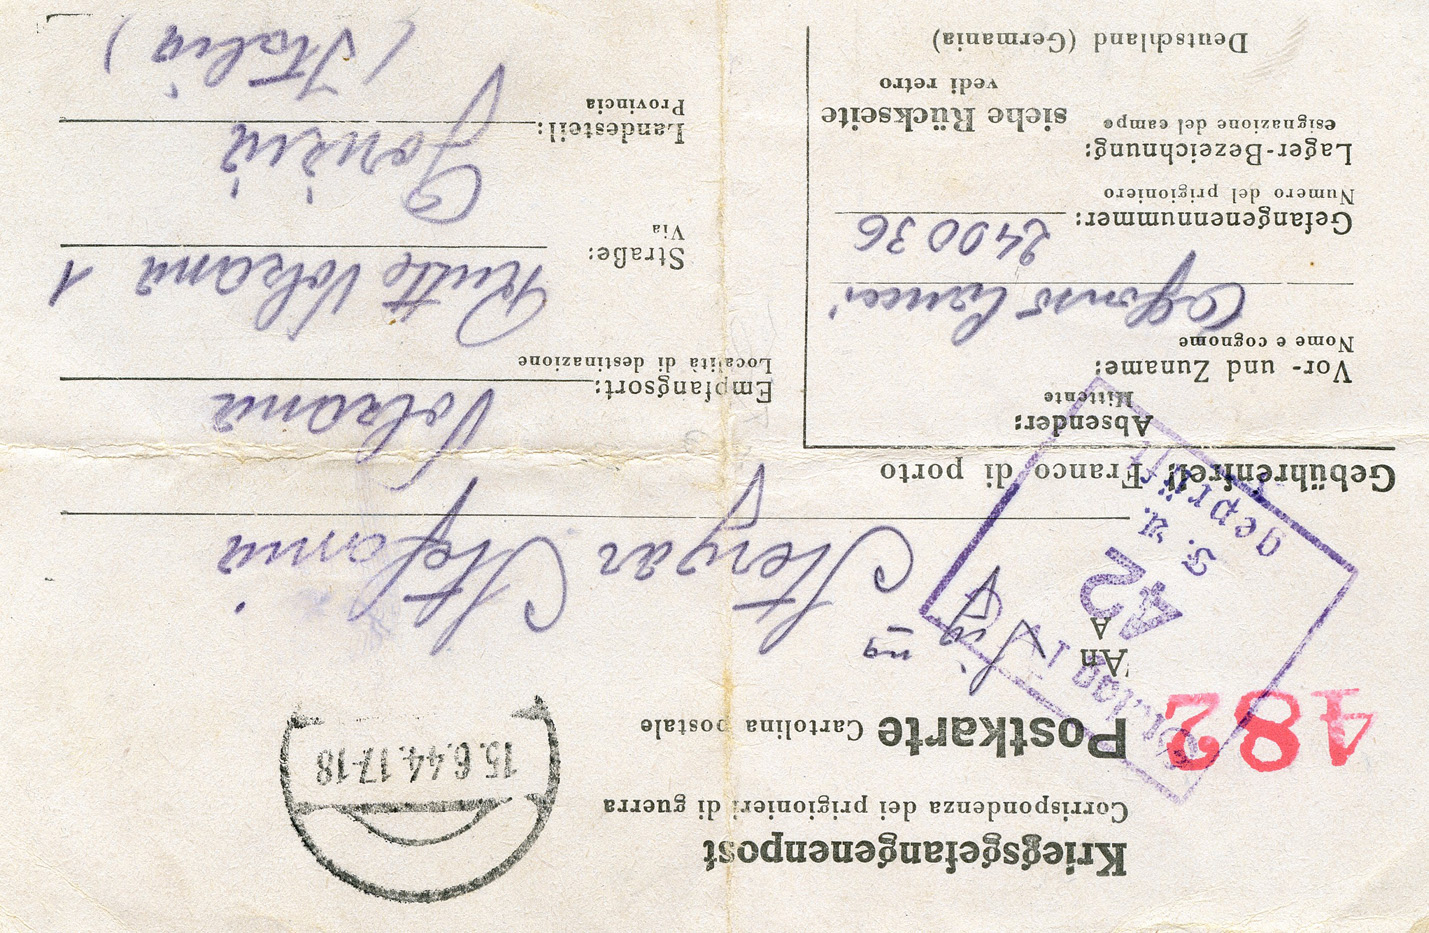 Kriegsgefangenenpost
Corrispondenza dei prigionieri di guerra
Postkarte Cartolina postale
15.6.44.17-18
482
An
A
Stergar Stefania
Gebührenfrei! Franco di porto
Stalag IV
42
geprüft
Absender:
Mittente
Vor- und Zuname:
Nome e cognome
Gefangenennummer:
240036
Numero del prigioniero
Lager-Bezeichnung:
esignazione del campo
siehe Rückseite
vedi retro
Deutschland (Germania)
Empfangsort:
Località di destinazione
Volzana
Straße:
Via
Volzana 1
Landesteil:
Provincia
Gorizia
(Italia)